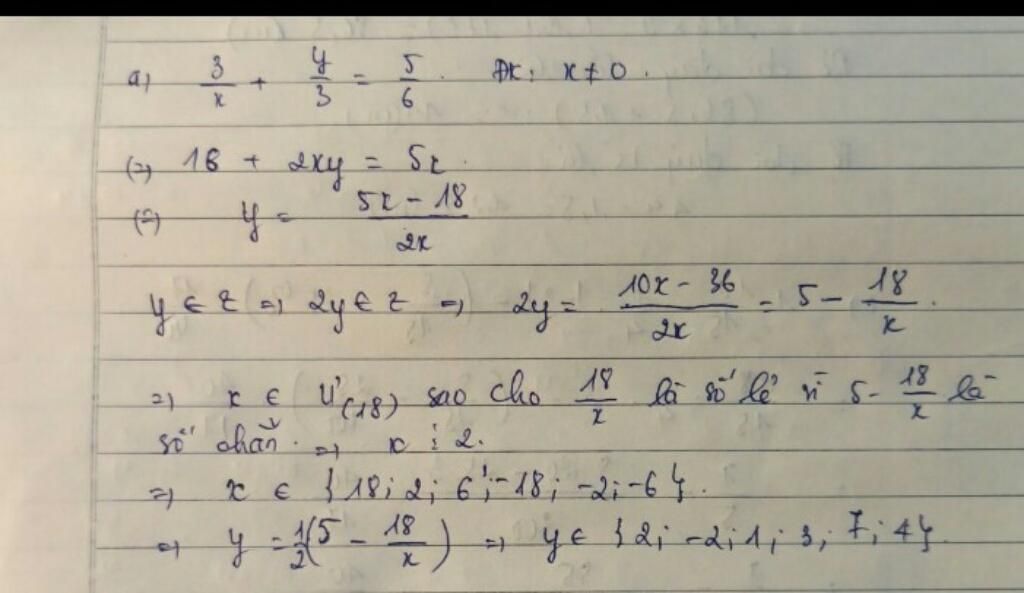 a) 3/x + y/3 = 5/6. ĐK: x ≠ 0.
(=) 18 + 2xy = 5x.
(=) y = (5x - 18)/(2x)
y ∈ Z => 2y ∈ Z => 2y = (10x - 36)/(2x) = 5 - 18/x.
=> x ∈ Ư(18) sao cho 18/x là số lẻ vì 5 - 18/x là
số chẵn. => x ⋮ 2.
=> x ∈ {18; 2; 6; -18; -2; -6}.
=> y = 1/2(5 - 18/x) => y ∈ {2; -2; 1; 3; 7; 4}.